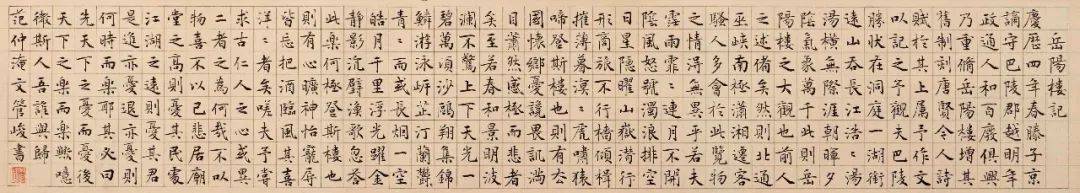 岳陽樓記
慶歷四年春滕子京
謫守巴陵郡越明年
政通人和百廢俱興
乃重脩岳陽樓增其
舊制刻唐賢今人詩
賦於其上屬予作文
以記之予觀夫巴陵
勝狀在洞庭一湖銜
遠山吞長江浩〻湯
湯橫無際涯朝暉夕
陰氣象萬千此則岳
陽樓之大觀也前人
之述備矣然則北通
巫峽南極瀟湘遷客
騷人多會於此覽物
之情得無異乎若夫
霪雨霏〻連月不開
陰風怒號濁浪排空
日星隱曜山嶽潛
形商旅不行檣傾楫
摧薄暮冥〻虎嘯猿
啼登斯樓也則有去
國懷鄉憂讒畏譏滿
目蕭然感極而悲者
矣至若春和景明波
瀾不驚上下天光一
碧萬頃沙鷗翔集錦
鱗游泳岸芷汀蘭鬱〻
青〻而或長煙一空
皓月千里浮光躍金
靜影沉璧漁歌互答
此樂何極登斯樓也
則有心曠神怡寵辱
皆忘把酒臨風其喜
洋〻者矣嗟夫予嘗
求古仁人之心或異
二者之為何哉不以
物喜不以己悲居廟
堂之高則憂其民處
江湖之遠則憂其君
是進亦憂退亦憂然則
何時而樂耶其必曰
先天下之憂而憂後
天下之樂而樂歟噫
微斯人吾誰與歸
范仲淹文管峻書